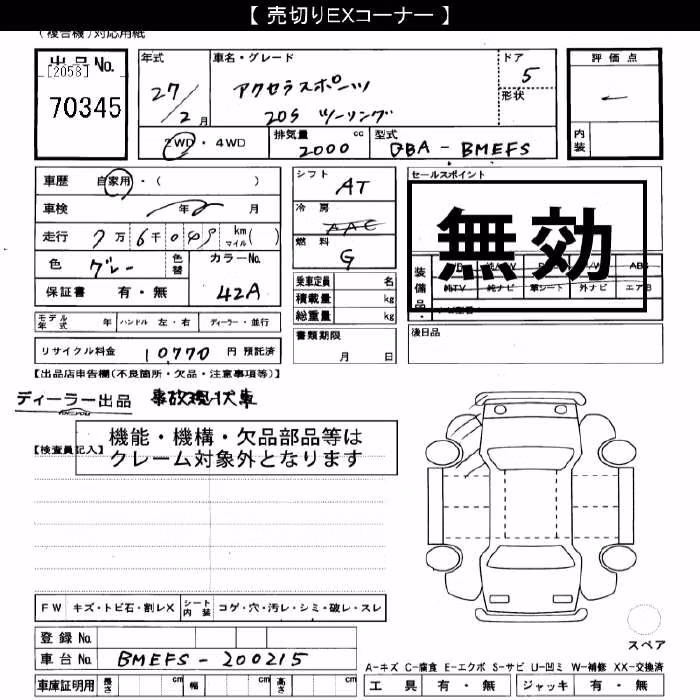 【 売切りEXコーナー 】
(複合機)対応用紙
出品No.
[2058]
70345
年式
27/2月
車名・グレード
アクセラスポーツ
20S ツーリング
ドア
5
形状
評価点
内装
2WD・4WD
排気量 cc
2000
型式
DBA - BMEFS
車歴 自家用・( )
車検 年 月
走行 7万6千049 km マイル( )
色 グレー 色替
カラーNo.
42A
保証書 有・無
シフト
AT
冷房
AAC
燃料
G
乗車定員 名
積載量 kg
総重量 kg
書類期限
月 日
セールスポイント
無効
装備品
純TV 純ナビ 革シート 外ナビ エアB
ABS
後日品
モデル年式 年 ハンドル 左・右 ディーラー・並行
リサイクル料金 10,770 円 預託済
【出品店申告欄(不良箇所・欠品・注意事項等)】
ディーラー出品 事故現状車
【検査員記入】
機能・機構・欠品部品等は
クレーム対象外となります
FW キズ・トビ石・割レX シート内装 コゲ・穴・汚レ・シミ・破レ・スレ
登録No.
車台No. BMEFS - 200215
車庫証明用 長さ cm 幅 cm 高さ cm
スペア
A-キズ C-腐食 E-エクボ S-サビ U-凹ミ W-補修 XX-交換済
工具 有・無 ジャッキ 有・無